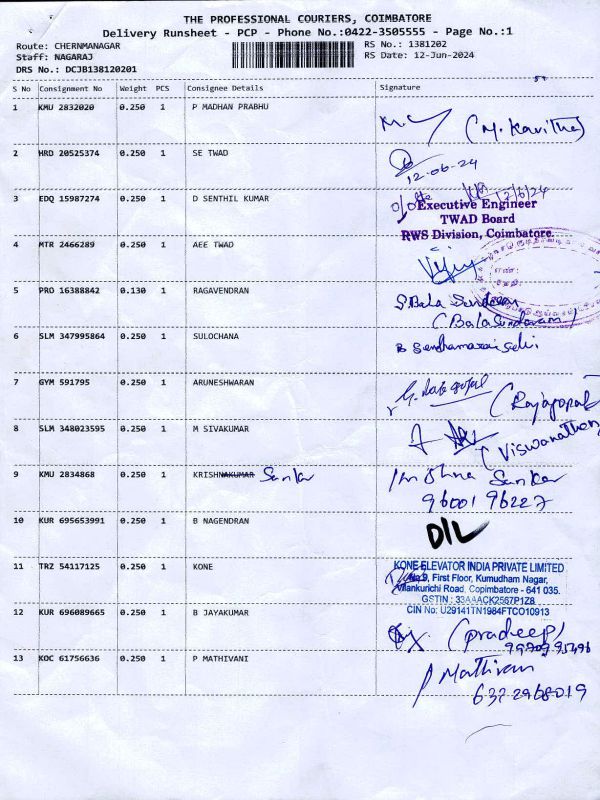 THE PROFESSIONAL COURIERS, COIMBATORE
Delivery Runsheet - PCP - Phone No.:0422-3505555 - Page No.:1
Route: CHERNMANAGAR RS No.: 1381202
Staff: NAGARAJ RS Date: 12-Jun-2024
DRS No.: DCJB138120201
S No Consignment No Weight PCS Consignee Details Signature
1 KMU 2832020 0.250 1 P MADHAN PRABHU
(M. Kavitha)
2 HRD 20525374 0.250 1 SE TWAD
12-06-24
3 EDQ 15987274 0.250 1 D SENTHIL KUMAR
12/6/24
Executive Engineer
TWAD Board
RWS Division, Coimbatore.
4 MTR 2466289 0.250 1 AEE TWAD
5 PRO 16388842 0.130 1 RAGAVENDRAN
S. Bala Sundaram
(Bala Sundaram)
6 SLM 347995864 0.250 1 SULOCHANA
7 GYM 591795 0.250 1 ARUNESHWARAN
(Rajagopal)
8 SLM 348023595 0.250 1 M SIVAKUMAR
(Viswanathan)
9 KMU 2834868 0.250 1 KRISHNAKUMAR Sankar
Krishna Sankar
96001 96227
10 KUR 695653991 0.250 1 B NAGENDRAN D/L
11 TRZ 54117125 0.250 1 KONE
KONE ELEVATOR INDIA PRIVATE LIMITED
No 9, First Floor, Kumudham Nagar,
Vilankurichi Road, Coimbatore - 641 035.
GSTIN : 33AAACK2567P1Z8
CIN No: U29141TN1984FTCO10913
12 KUR 696089665 0.250 1 B JAYAKUMAR
(pradeep)
13 KOC 61756636 0.250 1 P MATHIVANI
P Mathivani